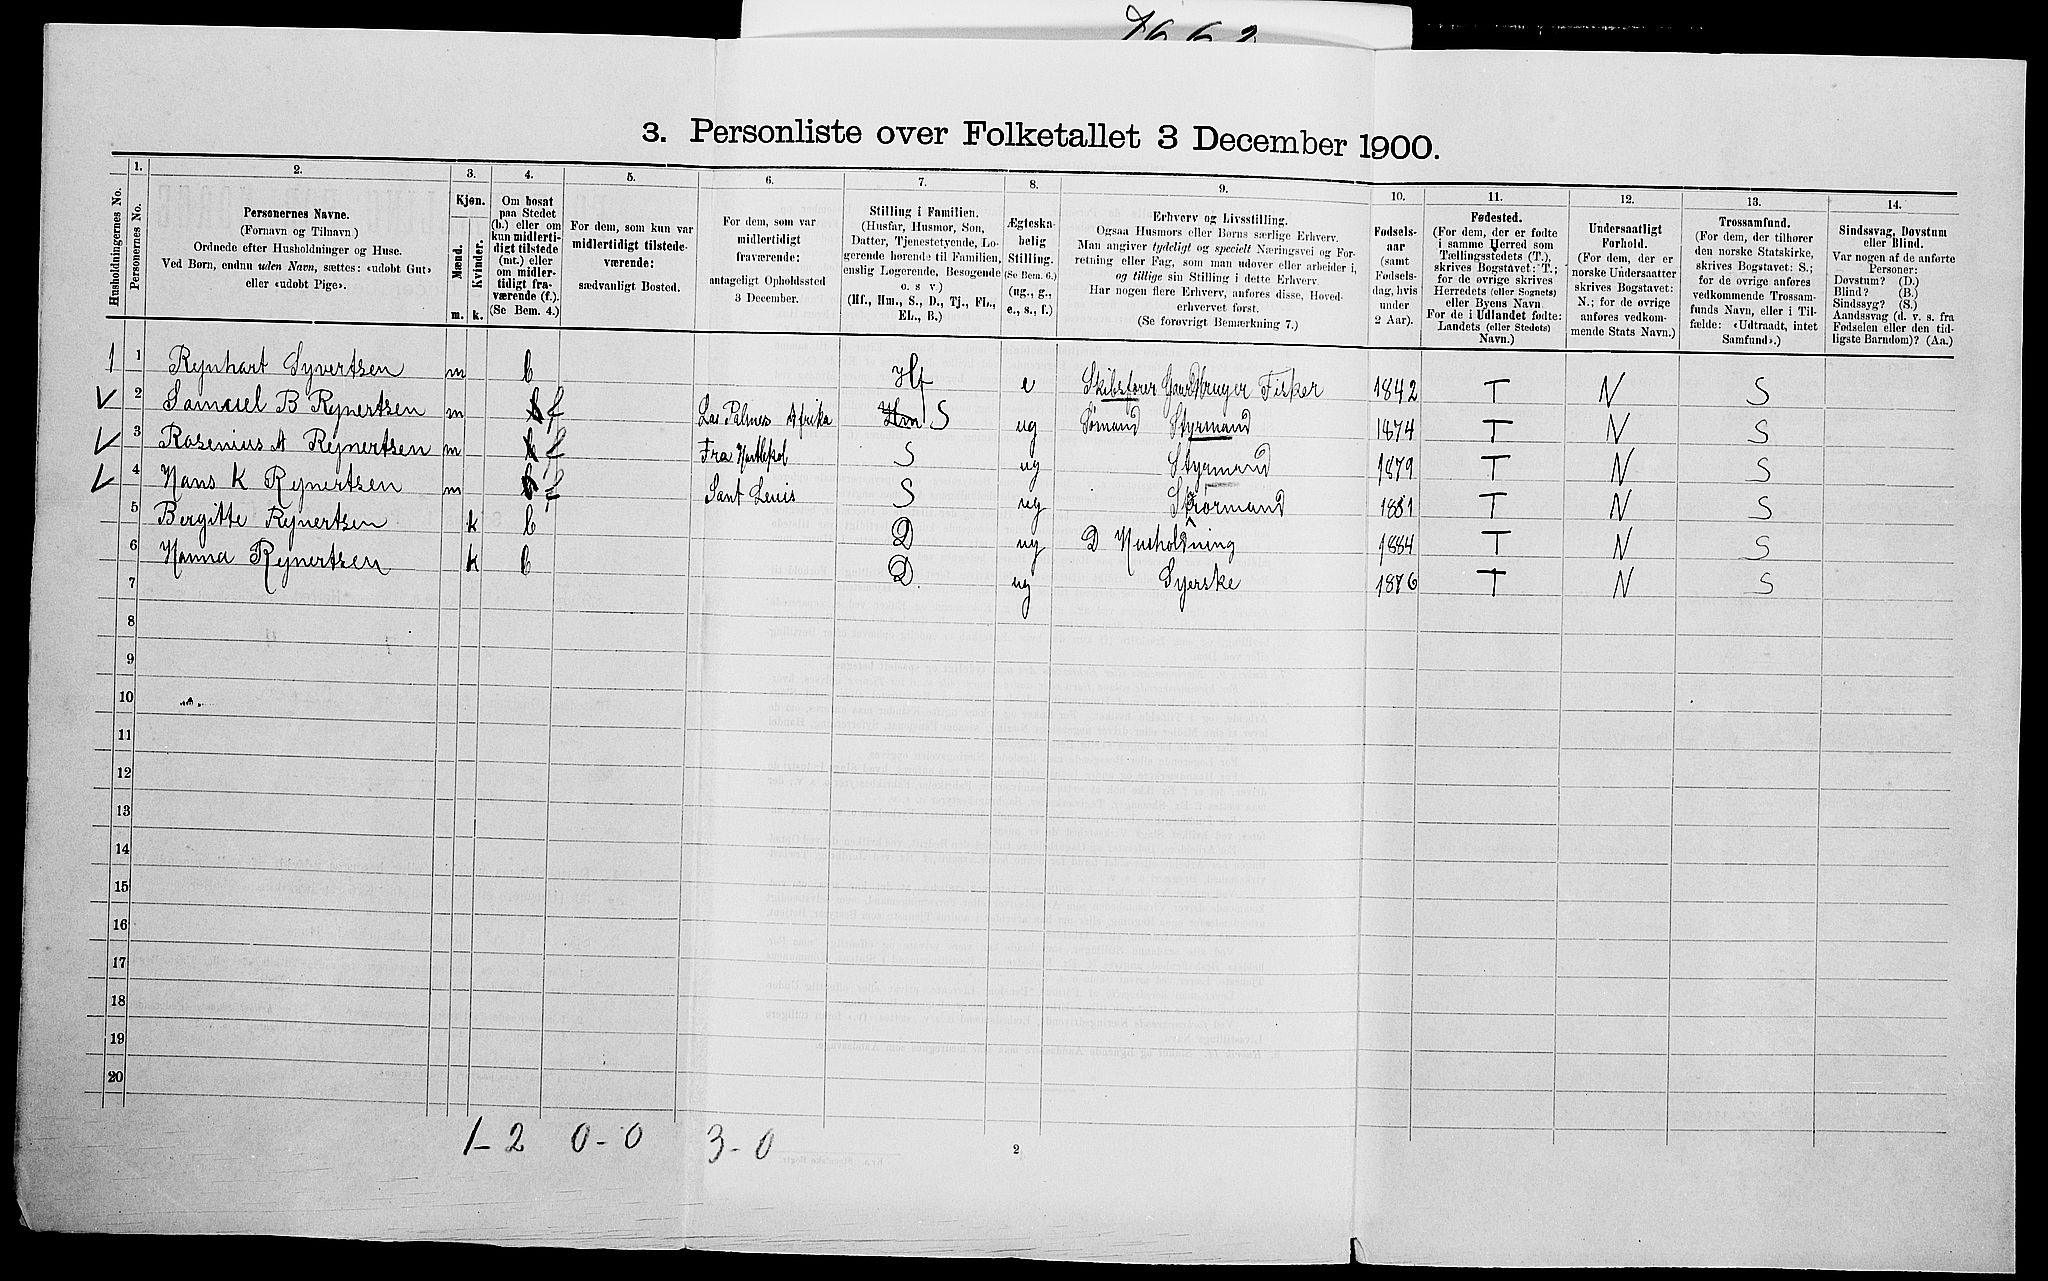 3. Personliste over Folketallet 3 December 1900.
1. 2. 3. 4. 5. 6. 7. 8. 9. 10. 11. 12. 13. 14.
Husholdningernes No.
Personernes No.
Personernes Navne.
(Fornavn og Tilnavn)
Ordnede efter Husholdninger og Huse.
Ved Børn, endnu uden Navn, sættes: «udøbt Gut»
eller «udøbt Pige».
Kjøn.
Mænd.
Kvinder.
m. k.
Om bosat
paa Stedet
(b.) eller om
kun midlerti-
digt tilstede
(mt.) eller
om midler-
tidigt fra-
værende (f.).
(Se Bem. 4.)
For dem, som kun var
midlertidigt tilstede-
værende:
sædvanligt Bosted.
For dem, som var
midlertidigt
fraværende:
antageligt Opholdssted
3 December.
Stilling i Familien.
(Husfar, Husmor, Søn,
Datter, Tjenestetyende, Lo-
gerende hørende til Familien,
enslig Logerende, Besøgende
o. s v.)
(Hf., Hm., S., D., Tj., FL.,
EL., B.)
Ægteska-
belig
Stilling.
(Se Bem. 6.)
(ug., g.,
e., s., f.)
Erhverv og Livsstilling.
Ogsaa Husmors eller Børns særlige Erhverv.
Man angiver tydeligt og specielt Næringsvei og For-
retning eller Fag, som man udøver eller arbeider i,
og tillige sin Stilling i dette Erhverv
Har nogen flere Erhverv, anføres disse, Hoved-
erhvervet først.
(Se forøvrigt Bemærkning 7.)
Fødsels-
aar
(samt
Fødsels-
dag, hvis
under
2 Aar).
Fødested.
(For dem, der er fødte
i samme Herred som
Tællingsstedets (T.),
skrives Bogstavet: T.;
for de øvrige skrives
Herredets (eller Sognets)
eller Byens Navn
For de i Udlandet fødte:
Landets (eller Stedets)
Navn.)
Undersaatligt
Forhold.
(For dem, der er
norske Undersaatter
skrives Bogstavet:
N.; for de øvrige
anføres vedkom-
mende Stats Navn.)
Trossamfund.
(For dem, der tilhører
den norske Statskirke,
skrives Bogstavet: S.;
for de øvrige anføres
vedkommende Trossam-
funds Navn, eller i Til-
fælde: «Udtraadt, intet
Samfund».)
Sindssvag, Døvstum
eller Blind.
Var nogen af de anførte
Personer:
Døvstum? (D.)
Blind? (B.)
Sindssyg? (S.)
Aandssvag (d. v. s. fra
Fødselen eller den tid-
ligste Barndom)? (Aa.)
1 1 Rejnhart Syvertsen m b Hf e Skibsfører Gaardbruger Fisker 1842 T N S
2 Samuel B Rejnertsen m b f Las Palmes Afrika Hm S ug Sømand Styrmand 1874 T N S
3 Rosenius A Rejnertsen m b f Fra Hartlepol S ug Styrmand 1879 T N S
4 Hans K Rejnertsen m b f Sant Leuis S ug 1881 T N S
5 Bergitte Rejnertsen k b D ug D Husholdning 1884 T N S
6 Hanna Rejnertsen k b D. ug Syerske 1876 T N S
7
8
9
10
11
12
13
14
15
16
17
18
19
20
1-2 0-0 3-0
2